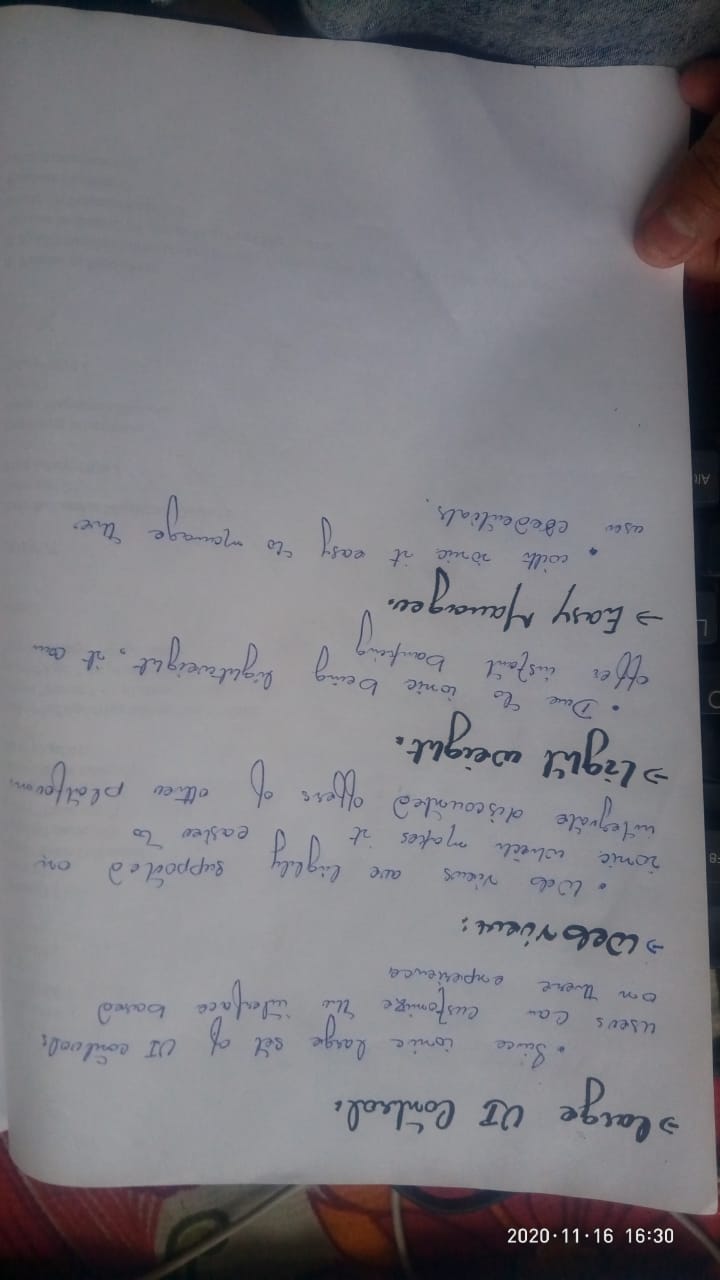 → Large UI Control:
• Since ionic large set of UI controls
users can customize the interface based
on there experience
→ Web View:
• Web views are highly supported on
ionic which makes it easier to
integrate discounted offers of other platform.
→ Light weight:
• Due to ionic being lightweight, it can
offer instant banking
→ Easy Manager:
• with ionic it easy to manage the
user credentials.
2020·11·16 16:30